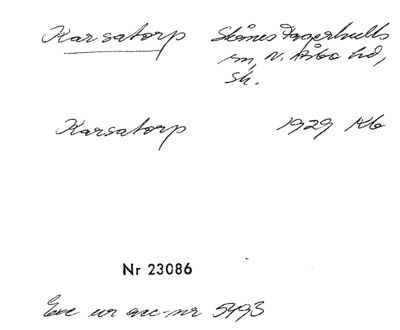 Karsatorp Skånes Fagerhults
sn, N. Åsbo hd,
Sk.
Karsatorp 1929 Kb
Nr 23086
Exc ur acc-nr 5493